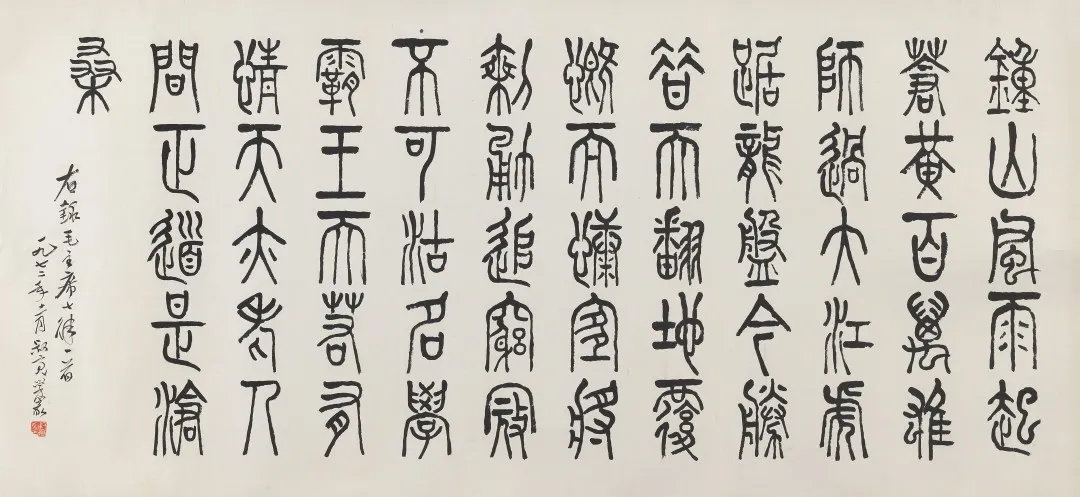 鍾山風雨起
蒼黃百萬雄
師過大江虎
踞龍盤今勝
昔天翻地覆
慨而慷宜將
剩勇追窮寇
不可沽名學
霸王天若有
情天亦老人
間正道是滄
桑
右錄毛主席七律一首
一九七